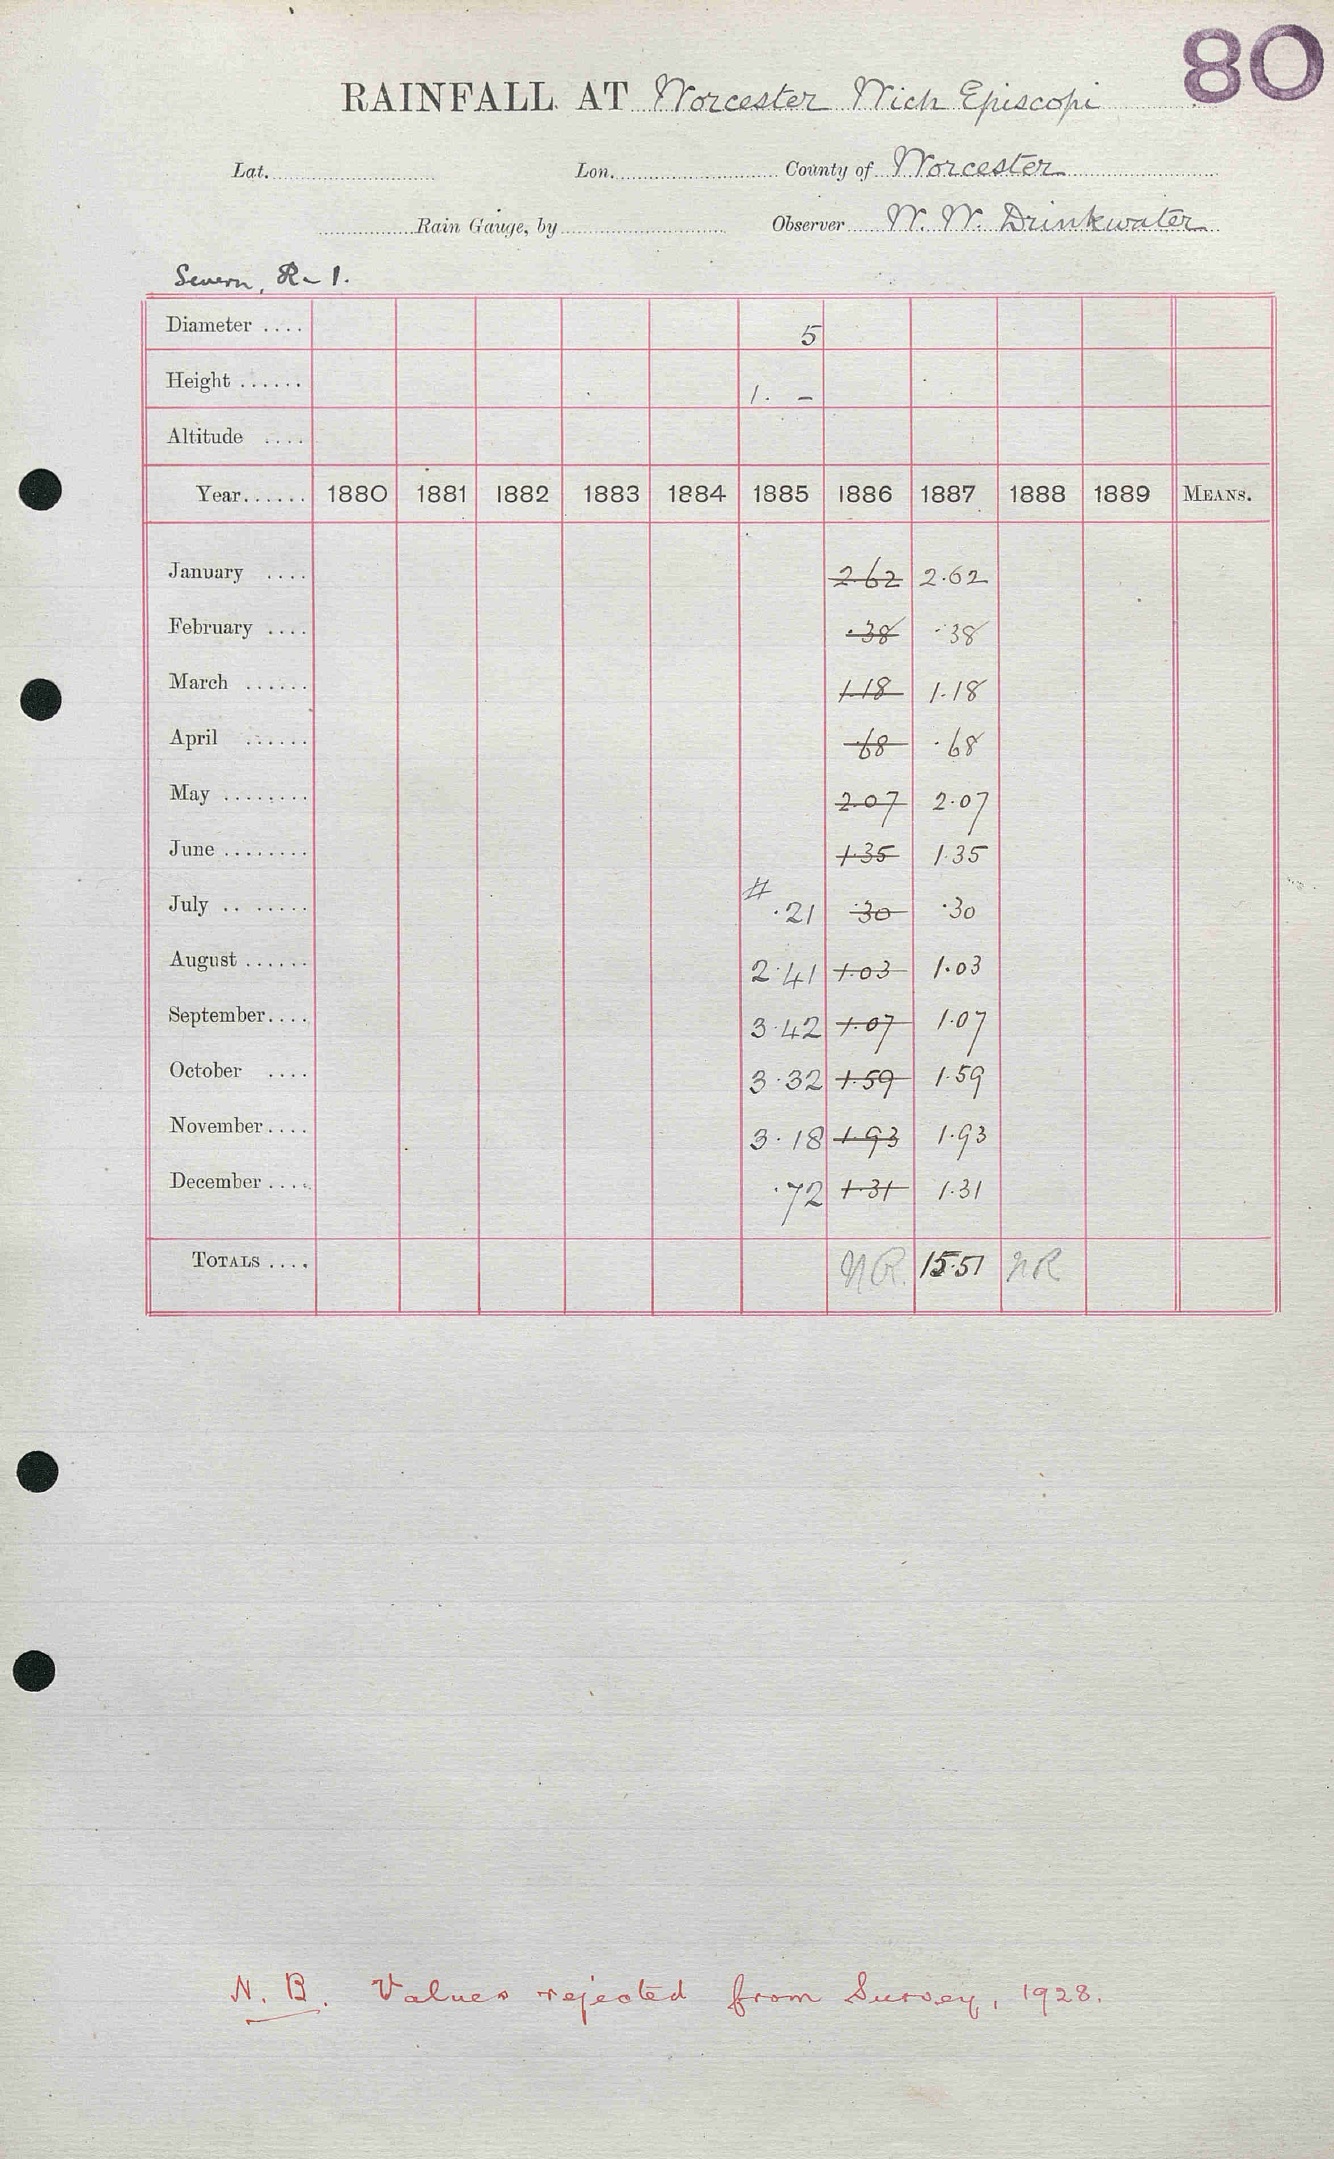 80
RAINFALL AT Worcester Wick Episcopi
Lat. Lon. County of Worcester
Rain Gauge, by Observer W. W. Drinkwater
Severn, R - 1.
Diameter .... 5
Height ...... 1. –
Altitude ....
Year...... 1880 1881 1882 1883 1884 1885 1886 1887 1888 1889 MEANS.
January .... 2.62 2.62
February .... .38 .38
March ...... 1.18 1.18
April ...... .68 .68
May ........ 2.07 2.07
June ........ 1.35 1.35
July .. ..... # .21 .30 .30
August ...... 2.41 1.03 1.03
September.... 3.42 1.07 1.07
October .... 3.32 1.59 1.59
November.... 3.18 1.93 1.93
December .... .72 1.31 1.31
TOTALS .... NR. 15.51 NR
N. B. Values rejected from Survey, 1928.